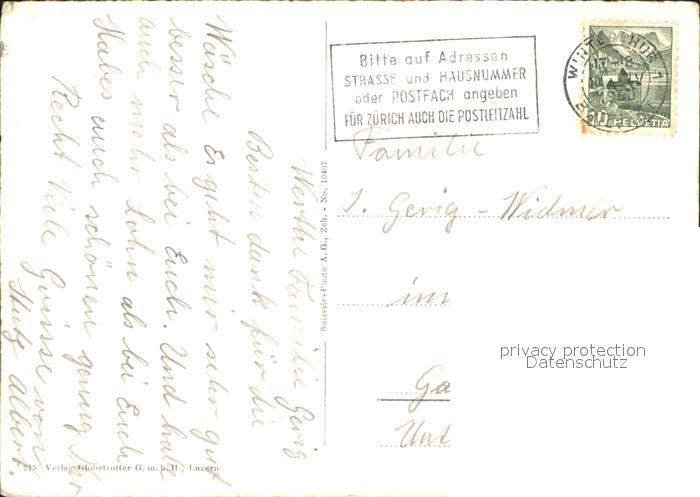 Werthe Familie Gerig
Besten dank für die
Wäsche Es geht mir sehr gut
besser als bei Euch. Und habe
auch mehr Lohn als bei Euch
Habes auch schönen genung Nur
Recht Viele Grüsse von
Stutz Albert.
Bitte auf Adressen
STRASSE und HAUSNUMMER
oder POSTFACH angeben
FÜR ZÜRICH AUCH DIE POSTLEITZAHL
WINTERTHUR 1
10 HELVETIA
Familie
J. Gerig - Widmer
im
Ga
Unt
privacy protection
Datenschutz
Suissair-Photo A. G., Zch. - No. 10407
215 Verlag Globetrotter G. m. b. H., Luzern